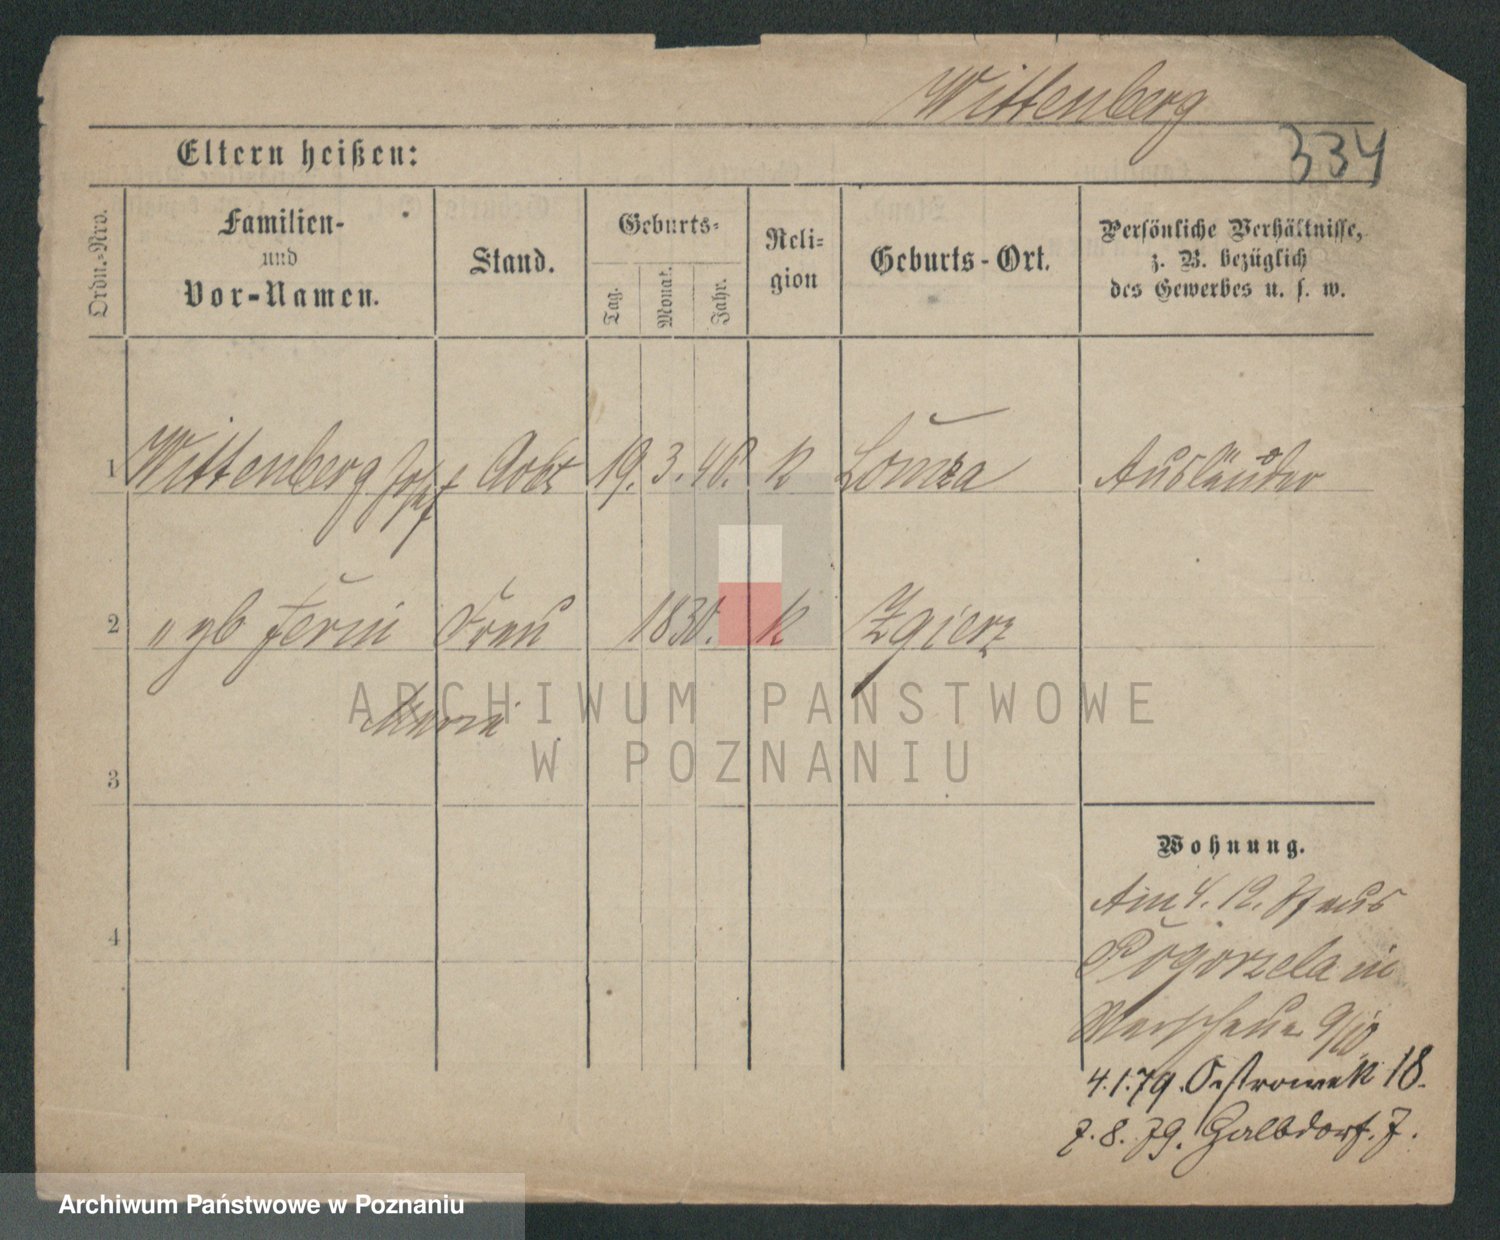 Wittenberg
334
Eltern heißen:
Ordn.-Nro.
Familien-
und
Vor-Namen.
Stand.
Geburts-
Tag.
Monat.
Jahr.
Reli-
gion
Geburts-Ort.
Persönliche Verhältnisse,
z. B. bezüglich
des Gewerbes u. s. w.
1 Wittenberg Josef Arbt 19. 3. 40. k Lomza Ausländer
2 " gb Frau 1830. k Zgierz
Maria
3
4
Wohnung.
Am 4. 12. aus
Pogorzela in
9/10
4.1.79. Ostrowek 18.
7. 8. 79. 7.
ARCHIWUM PAŃSTWOWE
W POZNANIU
Archiwum Państwowe w Poznaniu